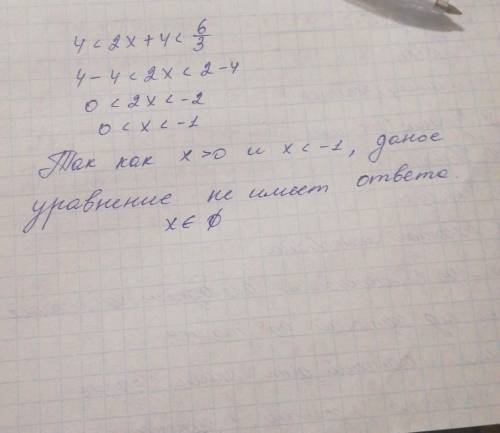 4 < 2x + 4 < 6/3
4 - 4 < 2x < 2 - 4
0 < 2x < -2
0 < x < -1
Так как x > 0 и x < -1, даное
уравнение не имеет ответа.
x ∈ ∅